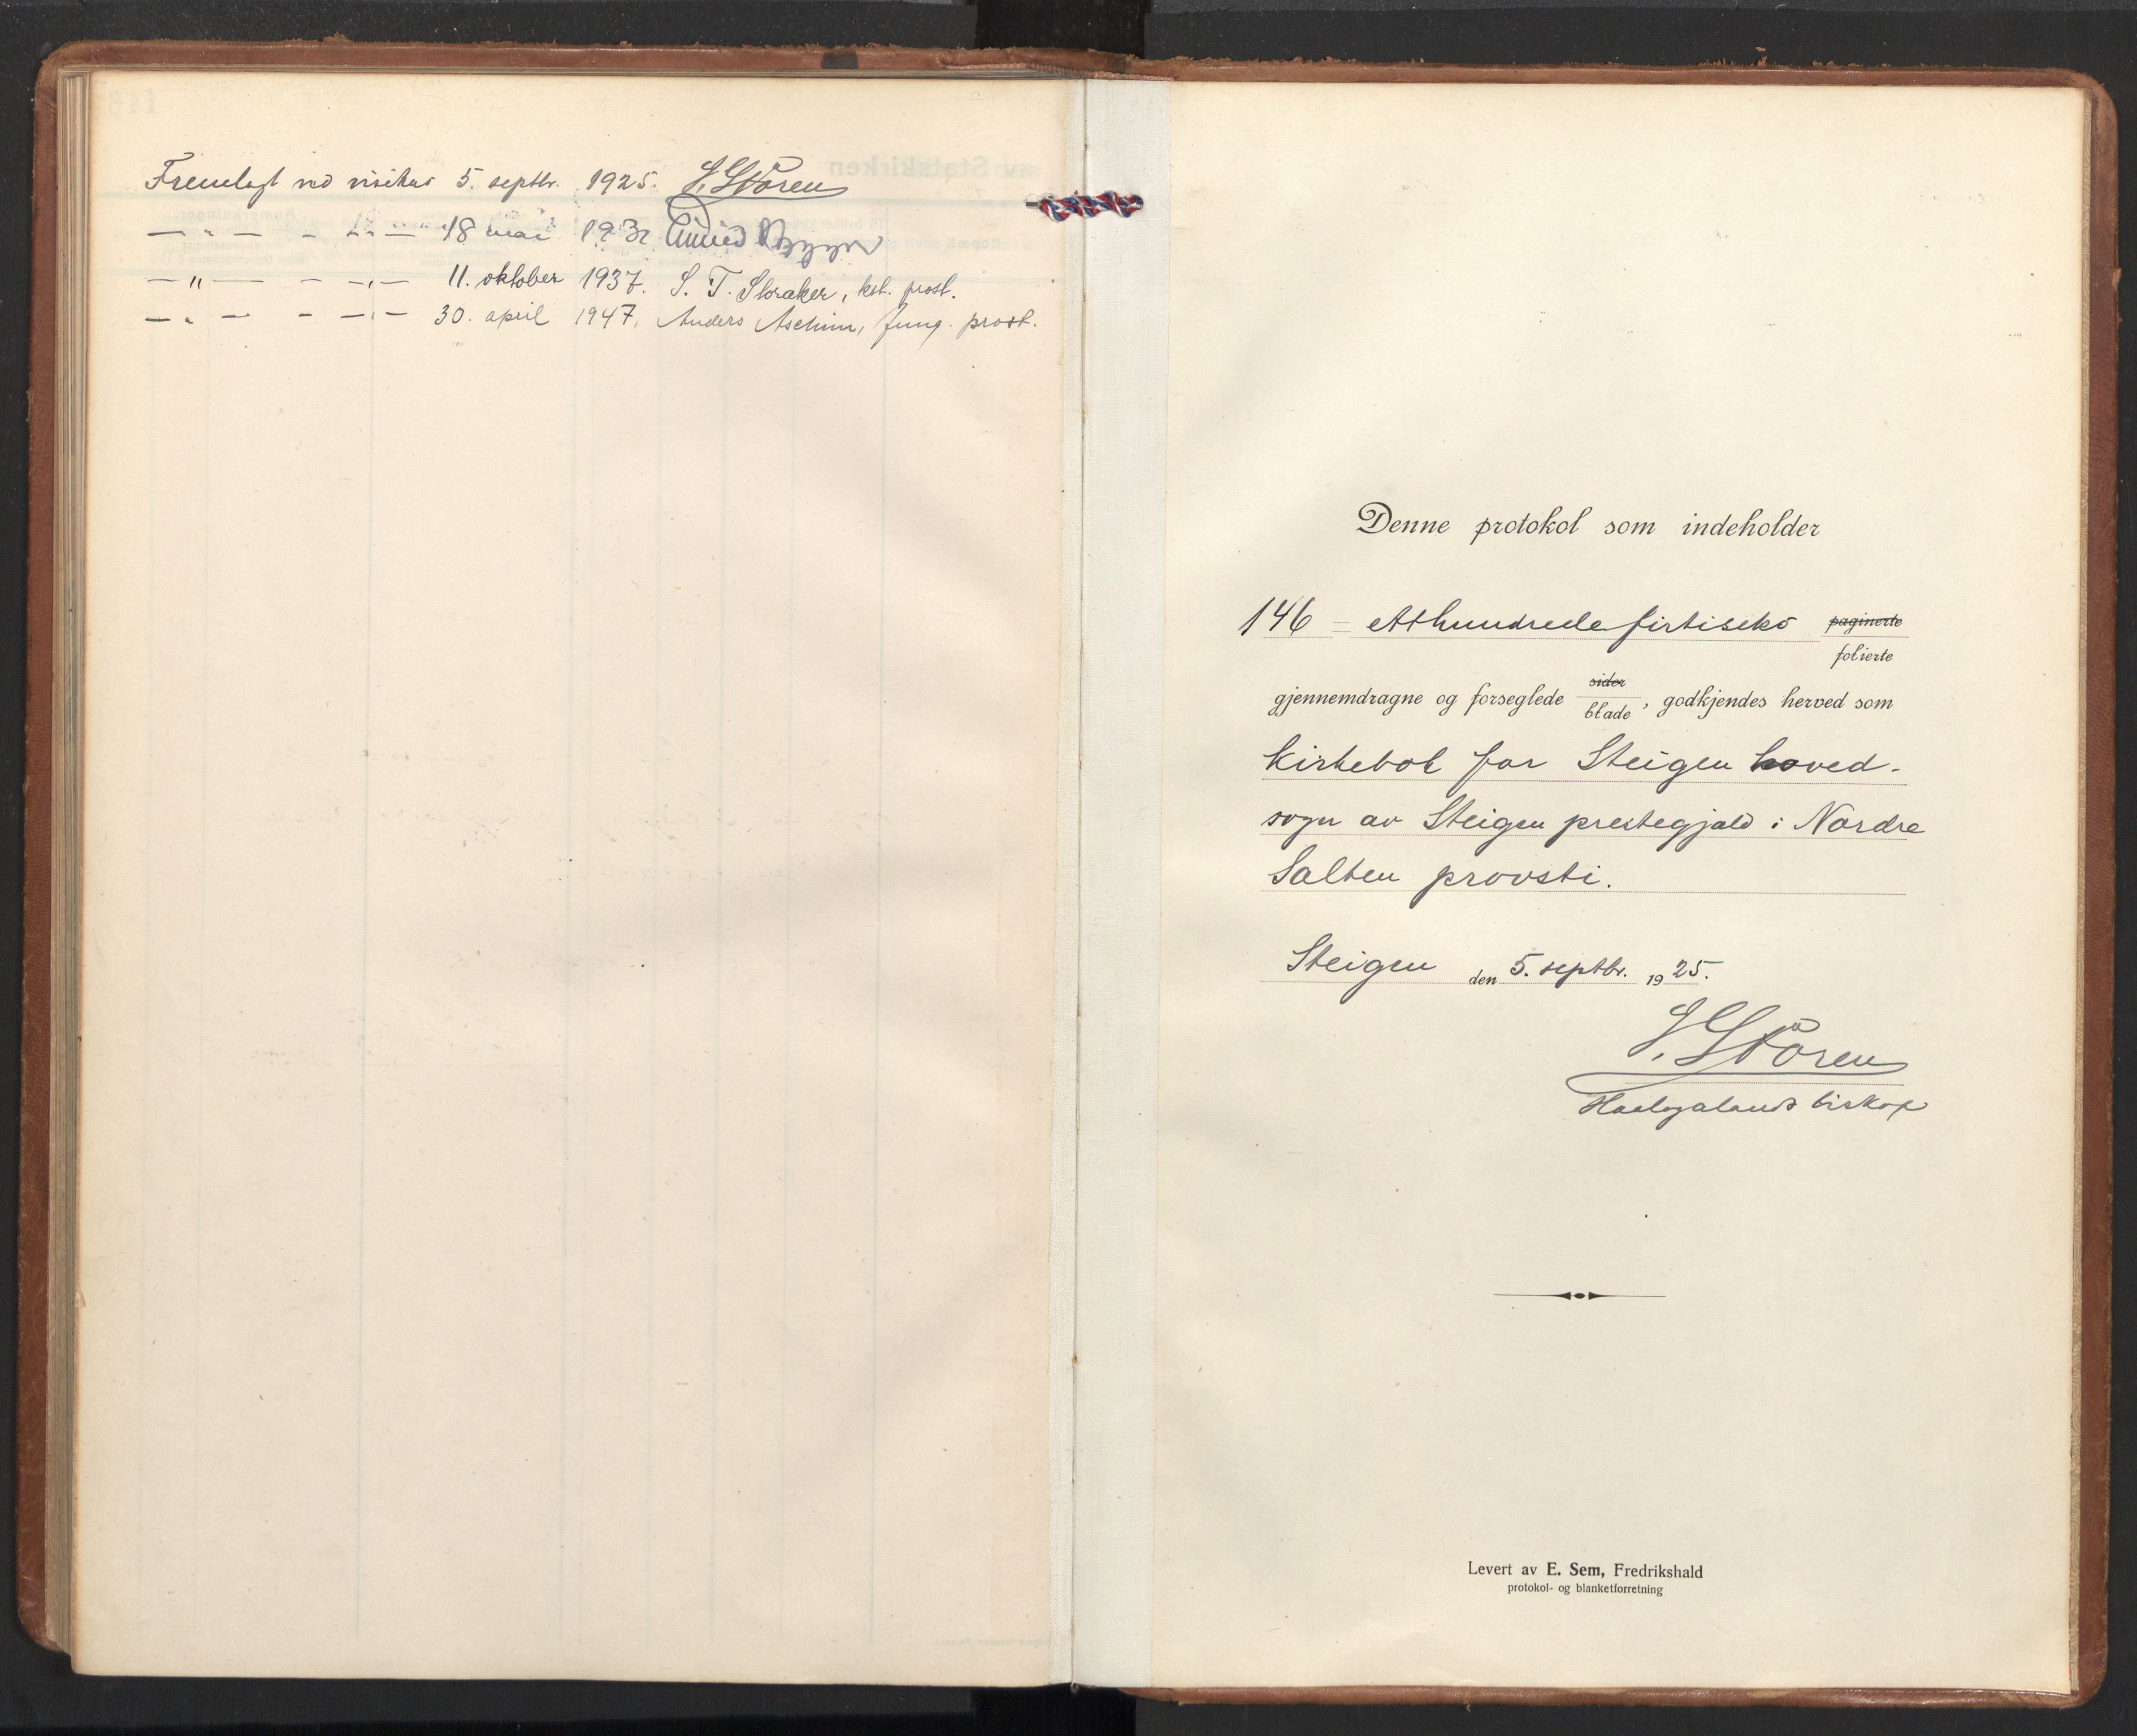 Fremlagt ved visitas 5. septbr. 1925. J. Støren
— " — – – " — 18 mai 1932 Eivind Berggrav
— " — – – " — 11. oktober 1937. S. T. Storaker, kst. prost.
— " — – – " — 30. april 1947. Anders Aschim, fung. prost.
Denne protokol som indeholder
146 = ethundrede firtiseks paginerte
folierte
gjennemdragne og forseglede sider blade, godkjendes herved som
kirkebok for Steigen hoved-
sogn av Steigen prestegjæld i Nordre
Salten provsti.
Steigen den 5. septbr. 1925.
J. Støren
Haalogalands biskop
Levert av E. Sem, Fredrikshald
protokol- og blanketforretning